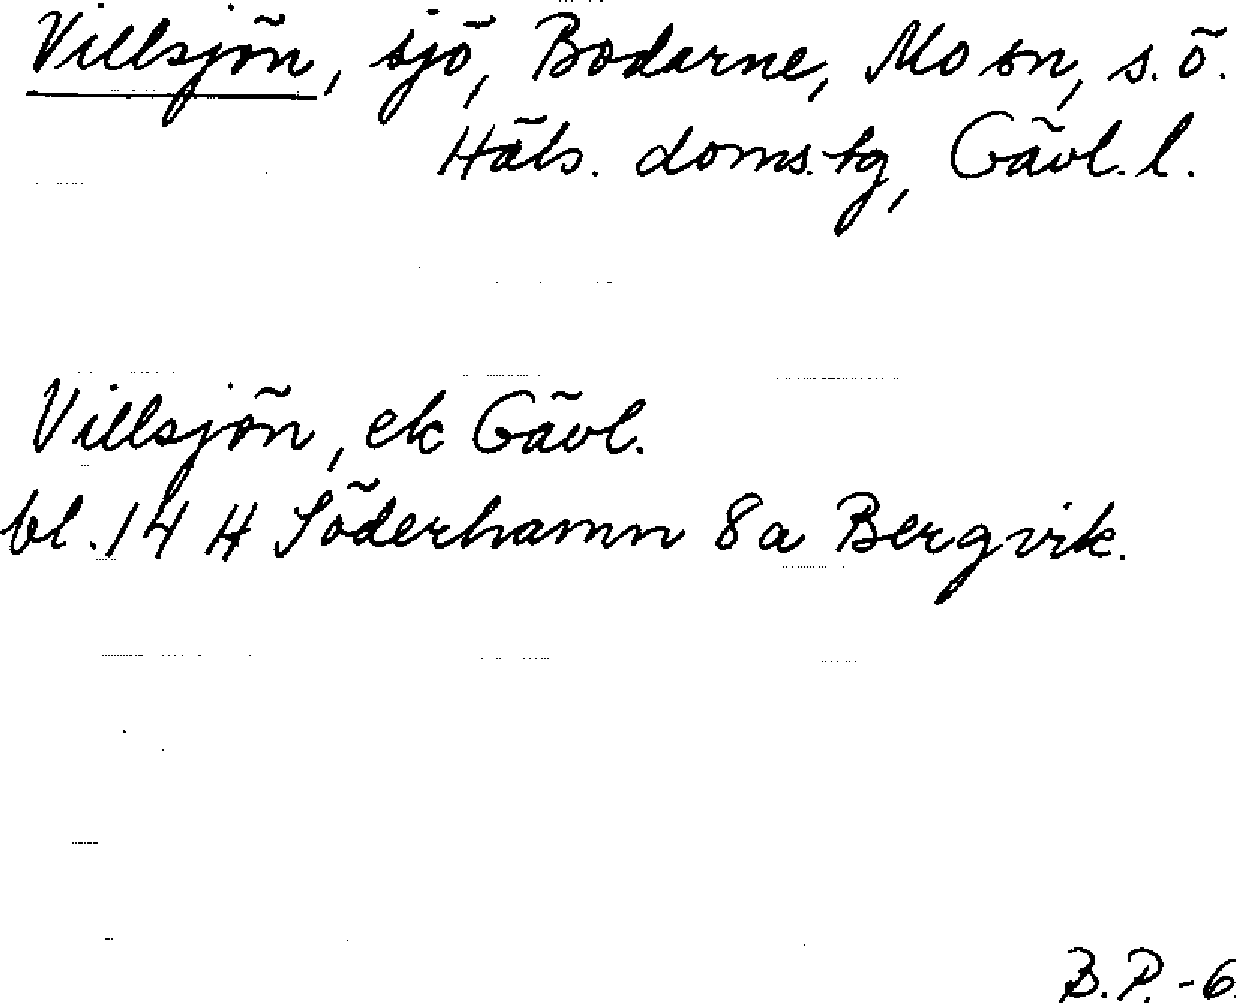 Villsjön, sjö, Bodarne, Mo sn, s. ö.
Häls. doms. tg, Gävl. l.
Villsjön, ek Gävl.
bl. 14 H Söderhamn 8a Bergvik.
B.P. -6